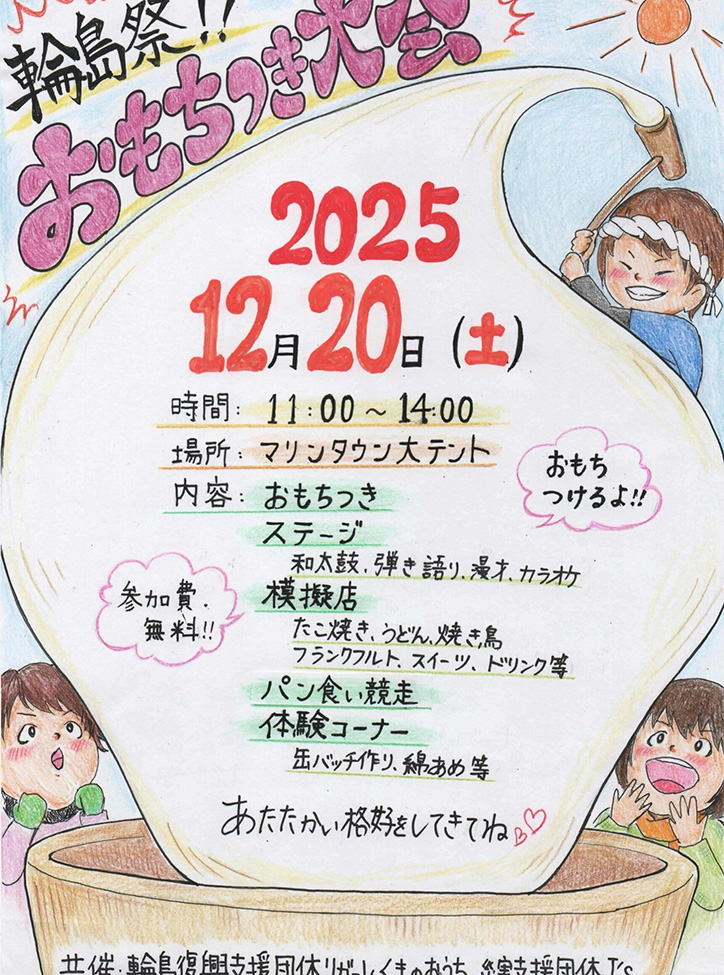 輪島祭!!
おもちつき大会
2025
12月20日(土)
時間: 11:00～14:00
場所: マリンタウン大テント
内容: おもちつき
ステージ
和太鼓、弾き語り、漫才、カラオケ
模擬店
たこ焼き、うどん、焼き鳥
フランクフルト、スイーツ、ドリンク等
パン食い競走
体験コーナー
缶バッチ作り、綿あめ 等
おもち
つけるよ!!
参加費.
無料!!
あたたかい格好をしてきてね
共催:輪島復興支援団体